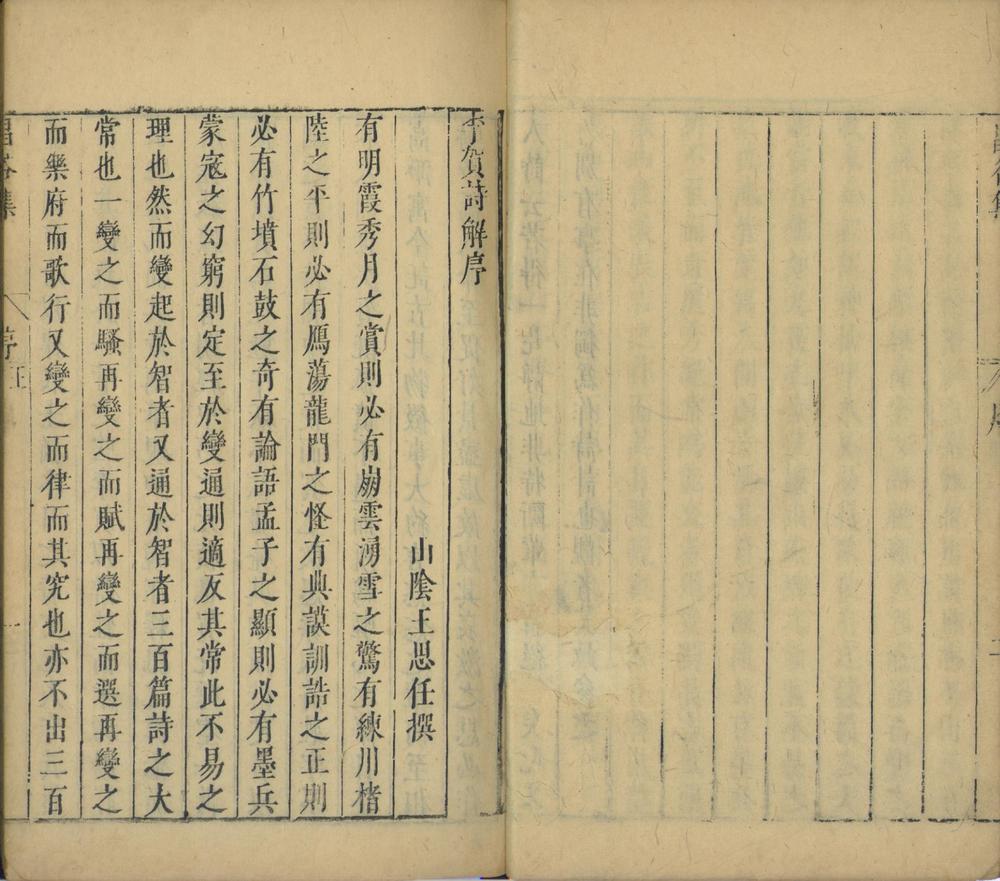 李賀詩解序
山陰王思任撰
有明霞秀月之賞則必有崩雲湧雪之驚有練川楷
陸之平則必有鴈蕩龍門之怪有典謨訓誥之正則
必有竹墳石鼓之奇有論語孟子之顯則必有墨兵
蒙寇之幻窮則定至於變通則適反其常此不易之
理也然而變起於智者又通於智者三百篇詩之大
常也一變之而騷再變之而賦再變之而選再變之
而樂府而歌行又變之而律而其究也亦不出三百
昌谷集
序